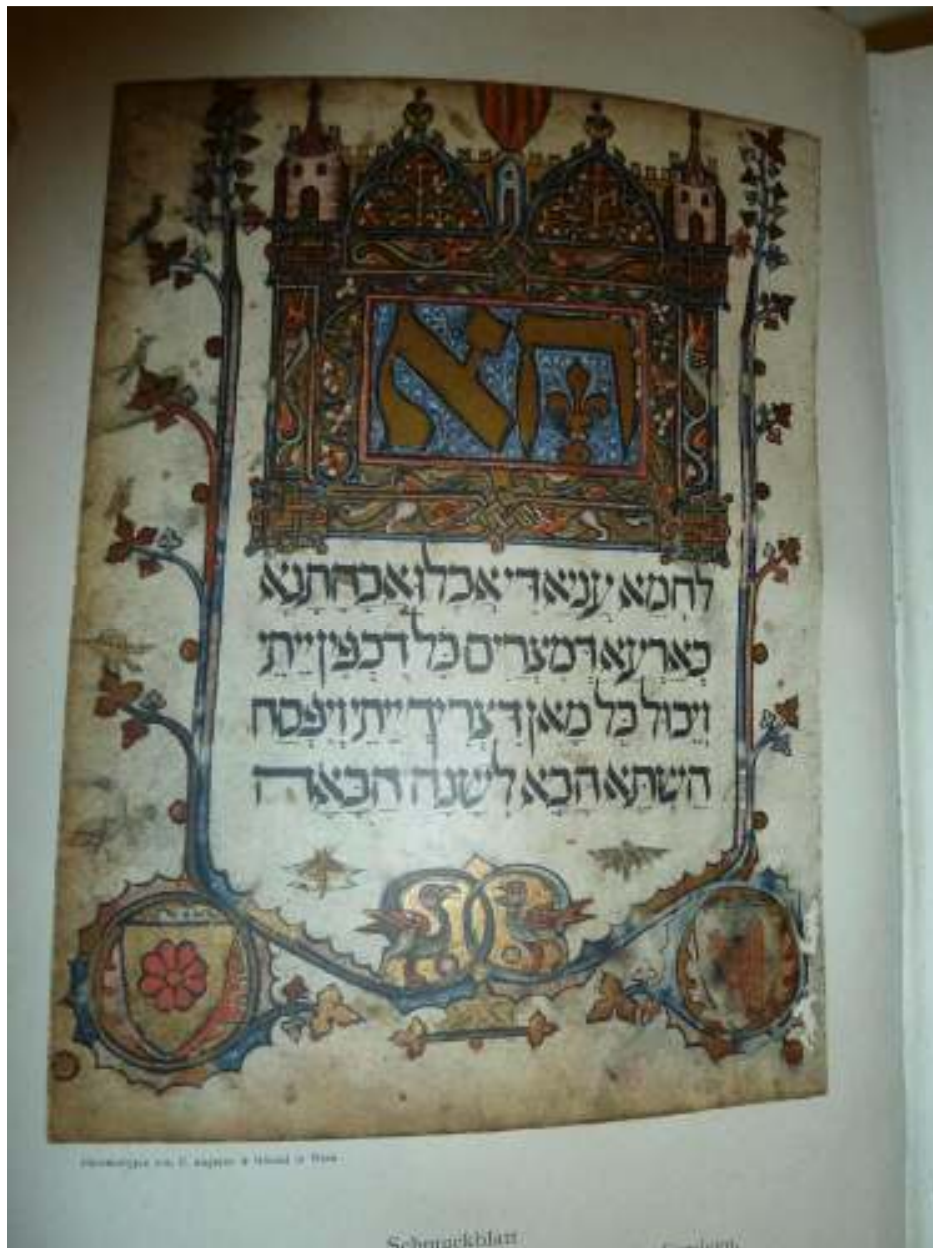 הא
לחמא עניא די אכלו אבהתנא
בארעא דמצרים כל דכפין ייתי
ויכול כל מאן דצריך ייתי ויפסח
השתא הכא לשנה הבאה
von C. Angerer & Göschl in Wien
Schmuckblatt